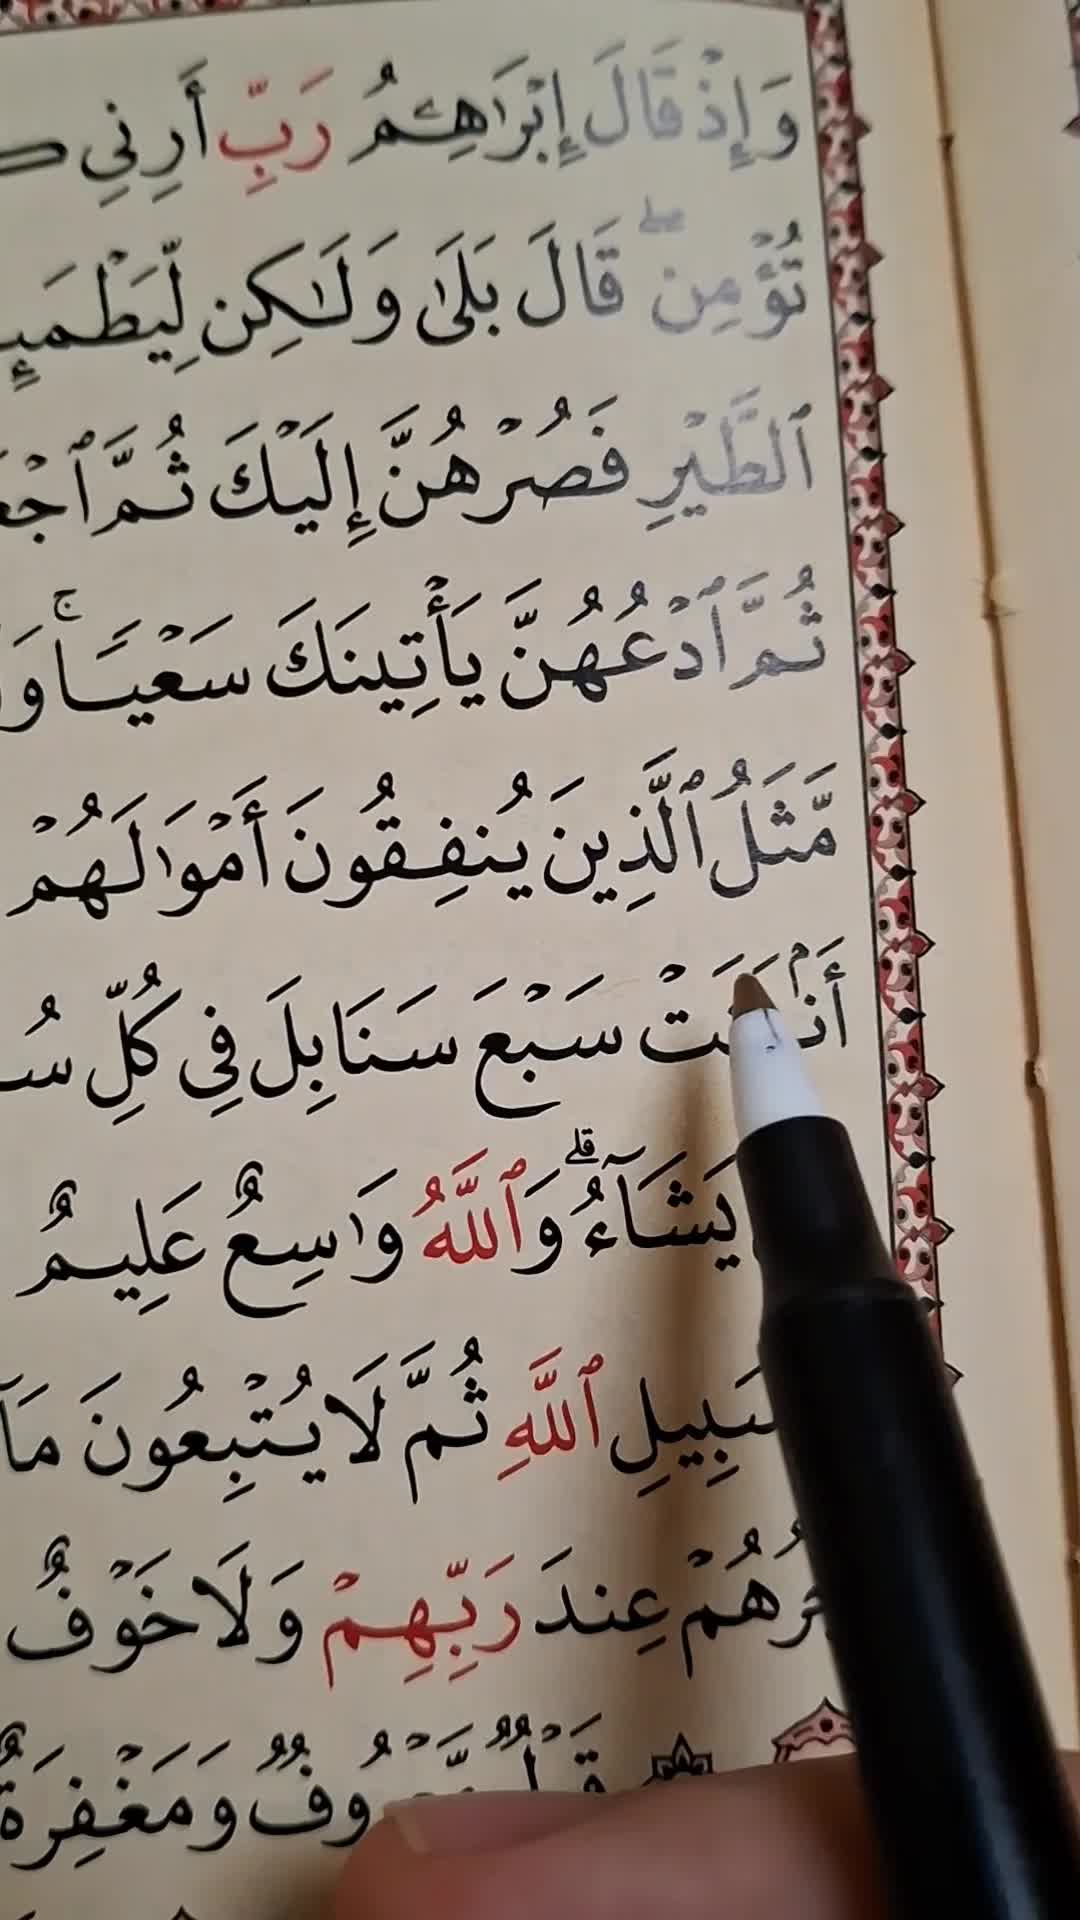 وَإِذْ قَالَ إِبْرَٰهِـۧمُ رَبِّ أَرِنِي
تُؤْمِنۖ قَالَ بَلَىٰ وَلَٰكِن لِّيَطْمَئِ
ٱلطَّيْرِ فَصُرْهُنَّ إِلَيْكَ ثُمَّ ٱجْعَ
ثُمَّ ٱدْعُهُنَّ يَأْتِينَكَ سَعْيًاۚ وَ
مَّثَلُ ٱلَّذِينَ يُنفِقُونَ أَمْوَٰلَهُمْ
أَنۢبَتَتْ سَبْعَ سَنَابِلَ فِي كُلِّ سُ
يَشَآءُۗ وَٱللَّهُ وَٰسِعٌ عَلِيمٌ
سَبِيلِ ٱللَّهِ ثُمَّ لَا يُتْبِعُونَ مَآ
جْرُهُمْ عِندَ رَبِّهِمْ وَلَا خَوْفٌ
قَوْلٌ مَّعْرُوفٌ وَمَغْفِرَةٌ